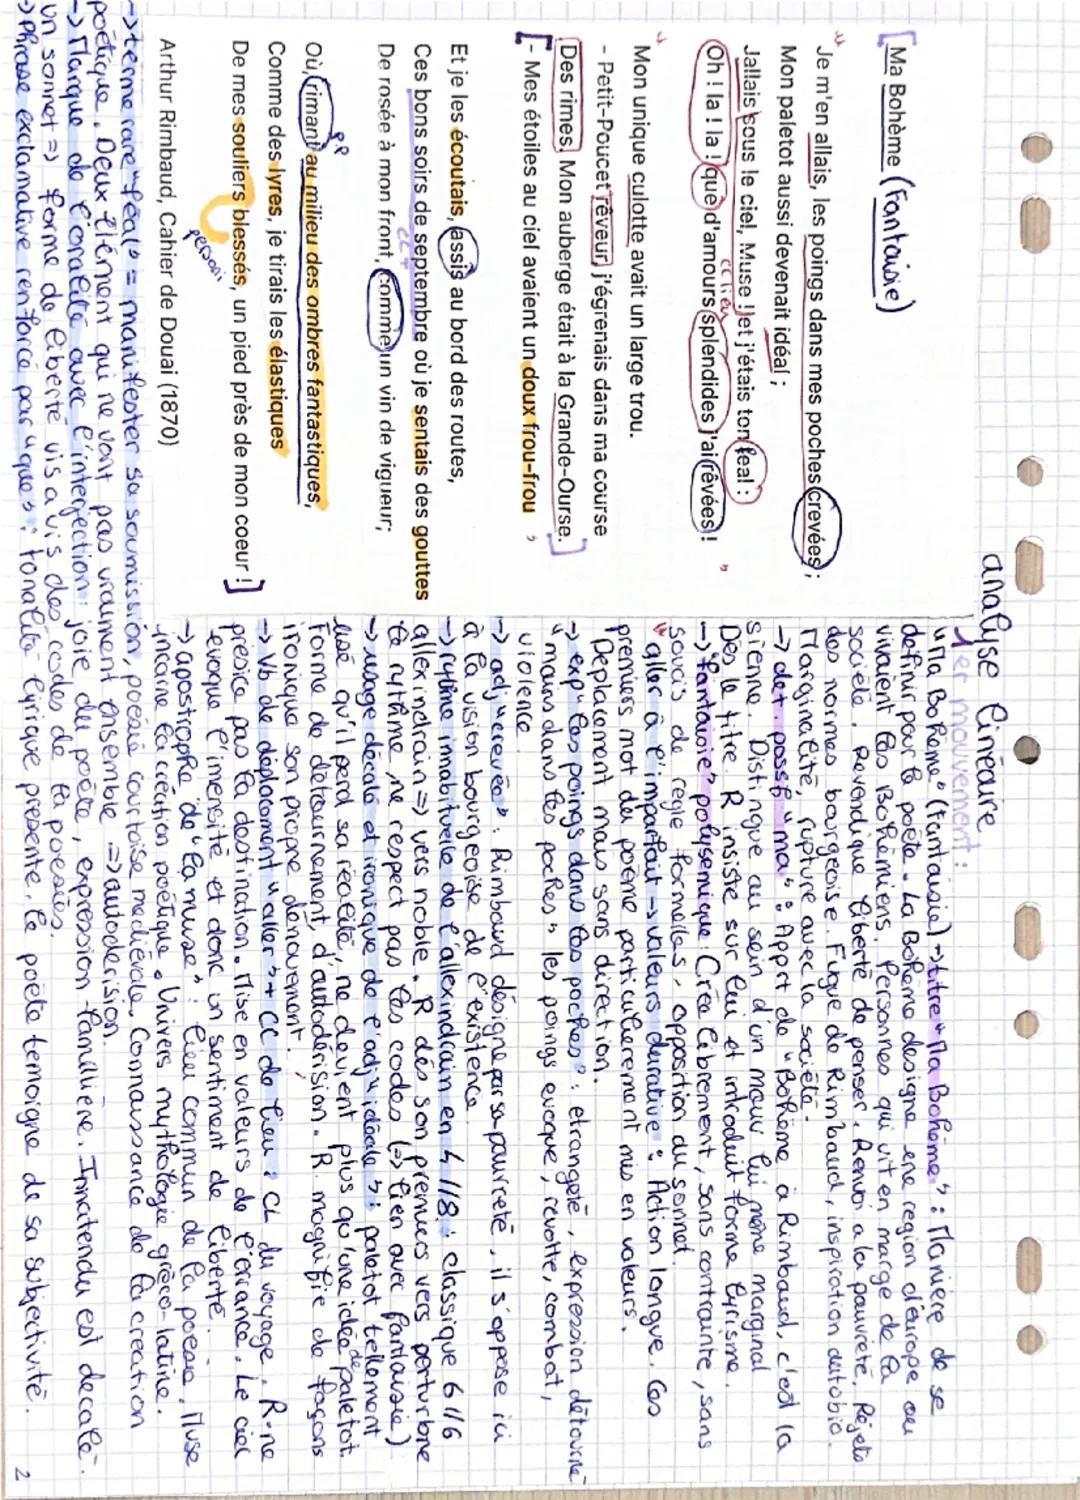 analyse linéaire
1er mouvement :
Ma Bohème (Fantaisie)
Je m'en allais, les poings dans mes poches crevées ;
Mon paletot aussi devenait idéal ;
J'allais sous le ciel, Muse ! et j'étais ton féal ;
cc lieu
Oh ! la ! la ! que d'amours splendides j'ai rêvées !
Mon unique culotte avait un large trou.
- Petit-Poucet rêveur, j'égrenais dans ma course
Des rimes. Mon auberge était à la Grande-Ourse.
- Mes étoiles au ciel avaient un doux frou-frou
Et je les écoutais, assis au bord des routes,
Ces bons soirs de septembre où je sentais des gouttes
De rosée à mon front, comme un vin de vigueur ;
Où, rimant au milieu des ombres fantastiques,
Comme des lyres, je tirais les élastiques
De mes souliers blessés, un pied près de mon coeur !
personi
Arthur Rimbaud, Cahier de Douai (1870)
"Ma Bohème" (Fantaisie) → titre "Ma Bohème" : Manière de se
définir pour le poète. La Bohème designe une region d'europe ou
vivaient les Bohémiens. Personnes qui vit en marge de la
société. Revendique liberté de penser. Renvoi a la pauvreté. Rejets
des normes bourgeoise. Fugue de Rimbaud, inspiration autobio.
Marginalité, rupture avec la société.
→ det. possif "ma" : Apprt de "Bohème à Rimbaud, c'est la
sienne. Distingue au sein d'un mouv lui même marginal
Dès le titre. R insiste sur lui et introduit forme lyrisme.
→ "Fantaisie" polysemique : Crée librement, sans contrainte, sans
soucis de règle formelles, opposition du sonnet.
aller à l'imparfait → valeurs durative : Action longue. Les
premiers mot du poème particulierement mis en valeurs.
Déplacement mais sans direction.
→ exp° "les poings dans les poches" : etrangeté, expression détourne
"mains dans les poches" les poings evoque, revolte, combat,
violence
→ adj "crevées" : Rimbaud désigne par sa pauvreté, il s'oppose ici
à la vision bourgeoise de l'existence.
→ rytme innabituelle de l'allexindrain en 4//8 : classique 6//6
allexindrain => vers noble. R dés son premiers vers perturbre
le rythme, ne respect pas les codes (=> lien avec faniaisie)
→ usage décalé et ironique de l'adj "idéale" : paletot tellement
usé qu'il perd sa réalité, ne devient plus qu'une idée de paletot.
Forme de détournement, d'autodérision. R. magnifie de façons
ironique son propre dénouement.
→ Vb de déplacement "aller" + CC de lieu : CL du voyage. R. ne
présice pas la destination. Mise en valeurs de l'errance. Le ciel
evoque l'imensité et donc un sentiment de liberté.
→ apostrophe de "la muse" : lieu commun de la poesie. Muse
incarne la création poétique. Univers mythologie gréco-latine.
→ terme rare "féal" = manifester sa soumission, poésie courtoise mediévale. Connaissance de la creation
poétique. Deux élément qui ne vont pas vraiment ensemble => autoderision.
→ Marque de l'oralité avec l'interjection : joie du poète, expression famillière. Innatendu est decalé.
un sonnet => forme de liberté vis a vis des codes de la poesies.
→ Phrase exclamative renforcé par "que" : tonalité lyrique présente, le poète temoigne de sa subjectivité.
2